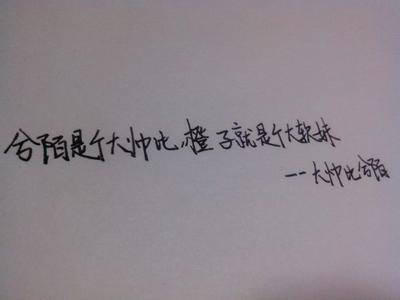 兮陌是个大帅比,橙子就是个大软妹
--大帅比兮陌